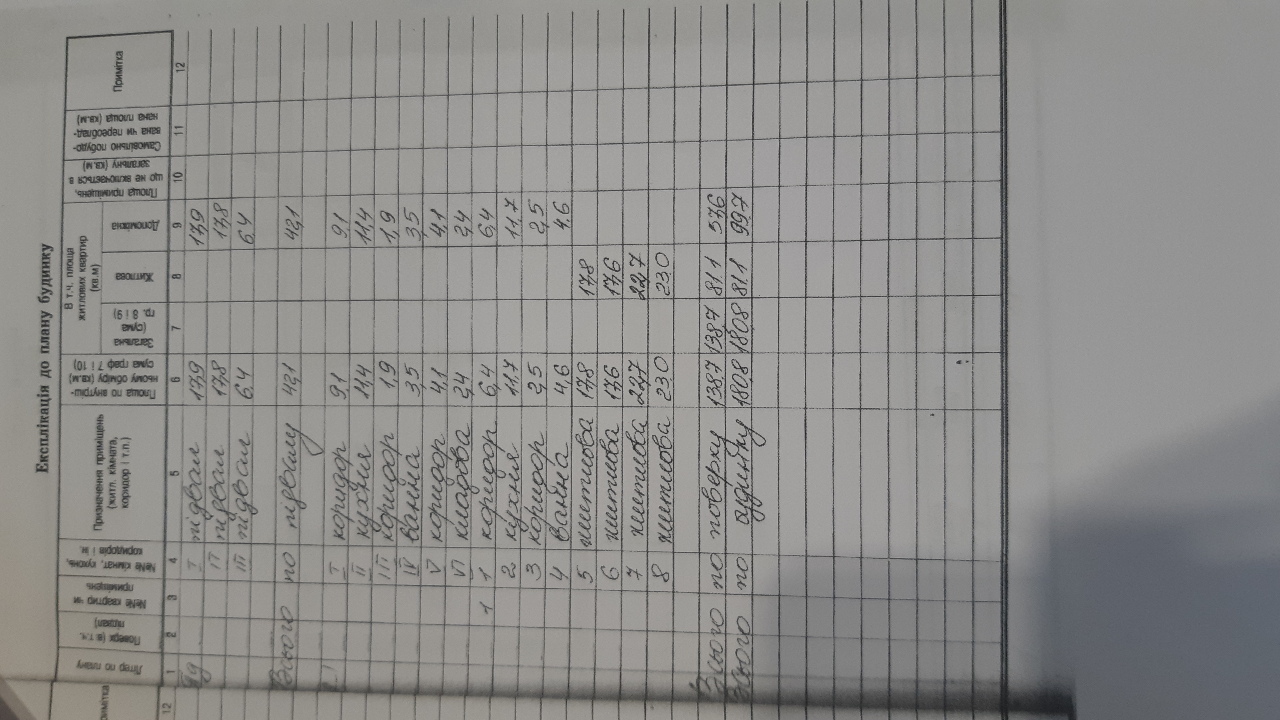 Експлікація до плану будинку
Літер по плану | Поверх (в т.ч. підвал) | №№ квартир чи приміщень | №№ кімнат, кухонь, коридорів і ін. | Призначення приміщень (житл. кімната, коридор і т.п.) | Площа по внутрішньому обміру (кв.м) сума граф 7 і 10) | В т.ч. площа житлових квартир (кв.м) | Загальна (сума гр. 8 і 9) | Житлова | Допоміжна | Площа приміщень, що не включається в загальну (кв.м) | Самовільно побудована чи переобладнана площа (кв.м) | Примітка
1 2 3 4 5 6 7 8 9 10 11 12
I підвал 17,9 17,9
II підвал 17,8 17,8
III підвал 6,4 6,4
Всього по підвалу 42,1 42,1
I коридор 9,1 9,1
II кухня 11,4 11,4
III коридор 1,9 1,9
IV ванна 3,5 3,5
V коридор 4,1 4,1
VI кладова 2,4 2,4
1 1 коридор 6,4 6,4
2 кухня 11,7 11,7
3 коридор 2,5 2,5
4 ванна 4,6 4,6
5 житлова 17,8 17,8
6 житлова 17,6 17,6
7 житлова 22,7 22,7
8 житлова 23,0 23,0
Всього по поверху 138,7 138,7 81,1 57,6
Всього по будинку 180,8 180,8 81,1 99,7
римітка
12